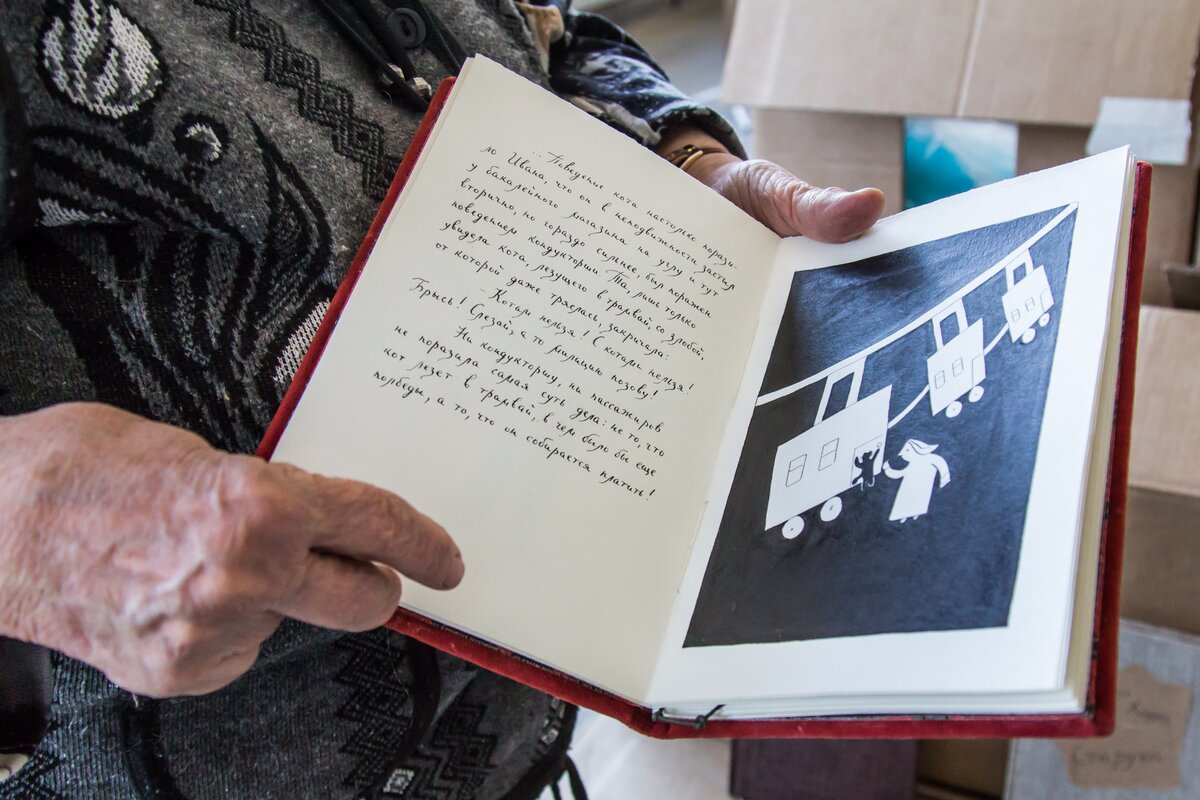 ... Поведение кота настолько порази-
ло Ивана, что он в неподвижности застыл
у бакалейного магазина на углу и тут
вторично, но гораздо сильнее, был поражен
поведением кондукторши. Та, лишь только
увидела кота, лезущего в трамвай, со злобой,
от которой даже тряслась, закричала:
- Котам нельзя! С котами нельзя!
Брысь! Слезай, а то милицию позову!
Ни кондукторшу, ни пассажиров
не поразила самая суть дела: не то, что
кот лезет в трамвай, в чем было бы еще
полбеды, а то, что он собирается платить!
Старухи